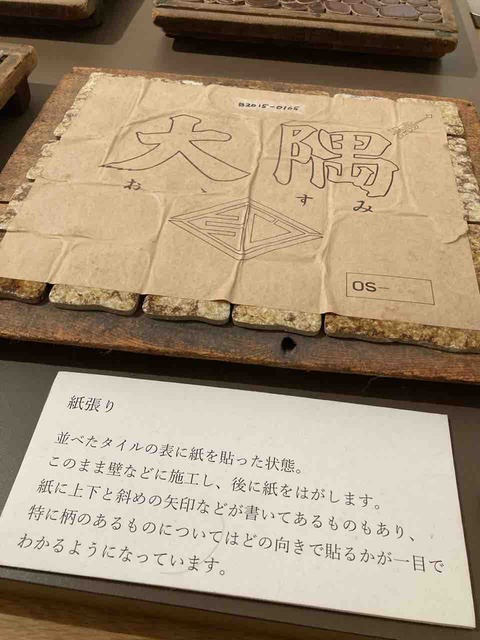 B2015-0165
大隅
おゝすみ
OS-
紙張り
並べたタイルの表に紙を貼った状態。
このまま壁などに施工し、後に紙をはがします。
紙に上下と斜めの矢印などが書いてあるものもあり、
特に柄のあるものについてはどの向きで貼るかが一目で
わかるようになっています。